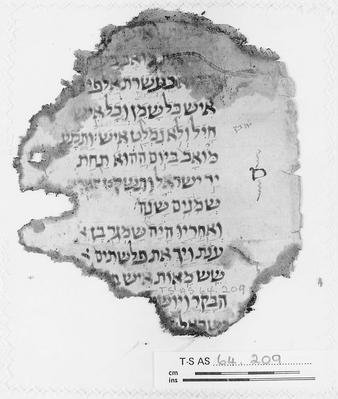 כעשרת אלפי
איש כל שמן וכל איש
חיל ולא נמלט איש ותכנע
מואב ביום ההוא תחת
יד ישראל ותשקט
שמנים שנה
ואחריו היה שמגר בן
ענת ויך את פלשתים
שש מאות איש
T-S AS 64.209
הבקר ויוש
ישראל
T-S AS 64.209
cm
ins